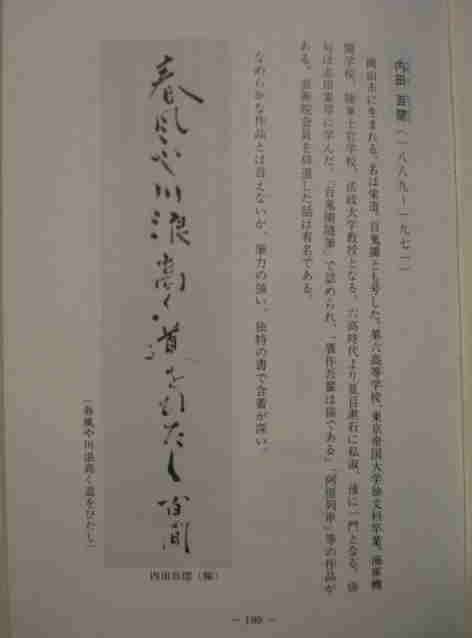 内田 百閒（一八八九～一九七一）
岡山市に生まれる。名は栄造。百鬼園とも号した。第六高等学校、東京帝国大学独文科卒業。海軍機
関学校、陸軍士官学校、法政大学教授となる。六高時代より夏目漱石に私淑、後に一門となる。俳
句は志田素琴に学んだ。「百鬼園随筆」で認められ、「贋作吾輩は猫である」「阿房列車」等の作品が
ある。芸術院会員を辞退した話は有名である。
なめらかな作品とは言えないが、筆力の強い、独特の書で含蓄が深い。
春風や川浪高く道をひたし 百間
「春風や川浪高く道をひたし」
内田百閒（軸）
— 190 —